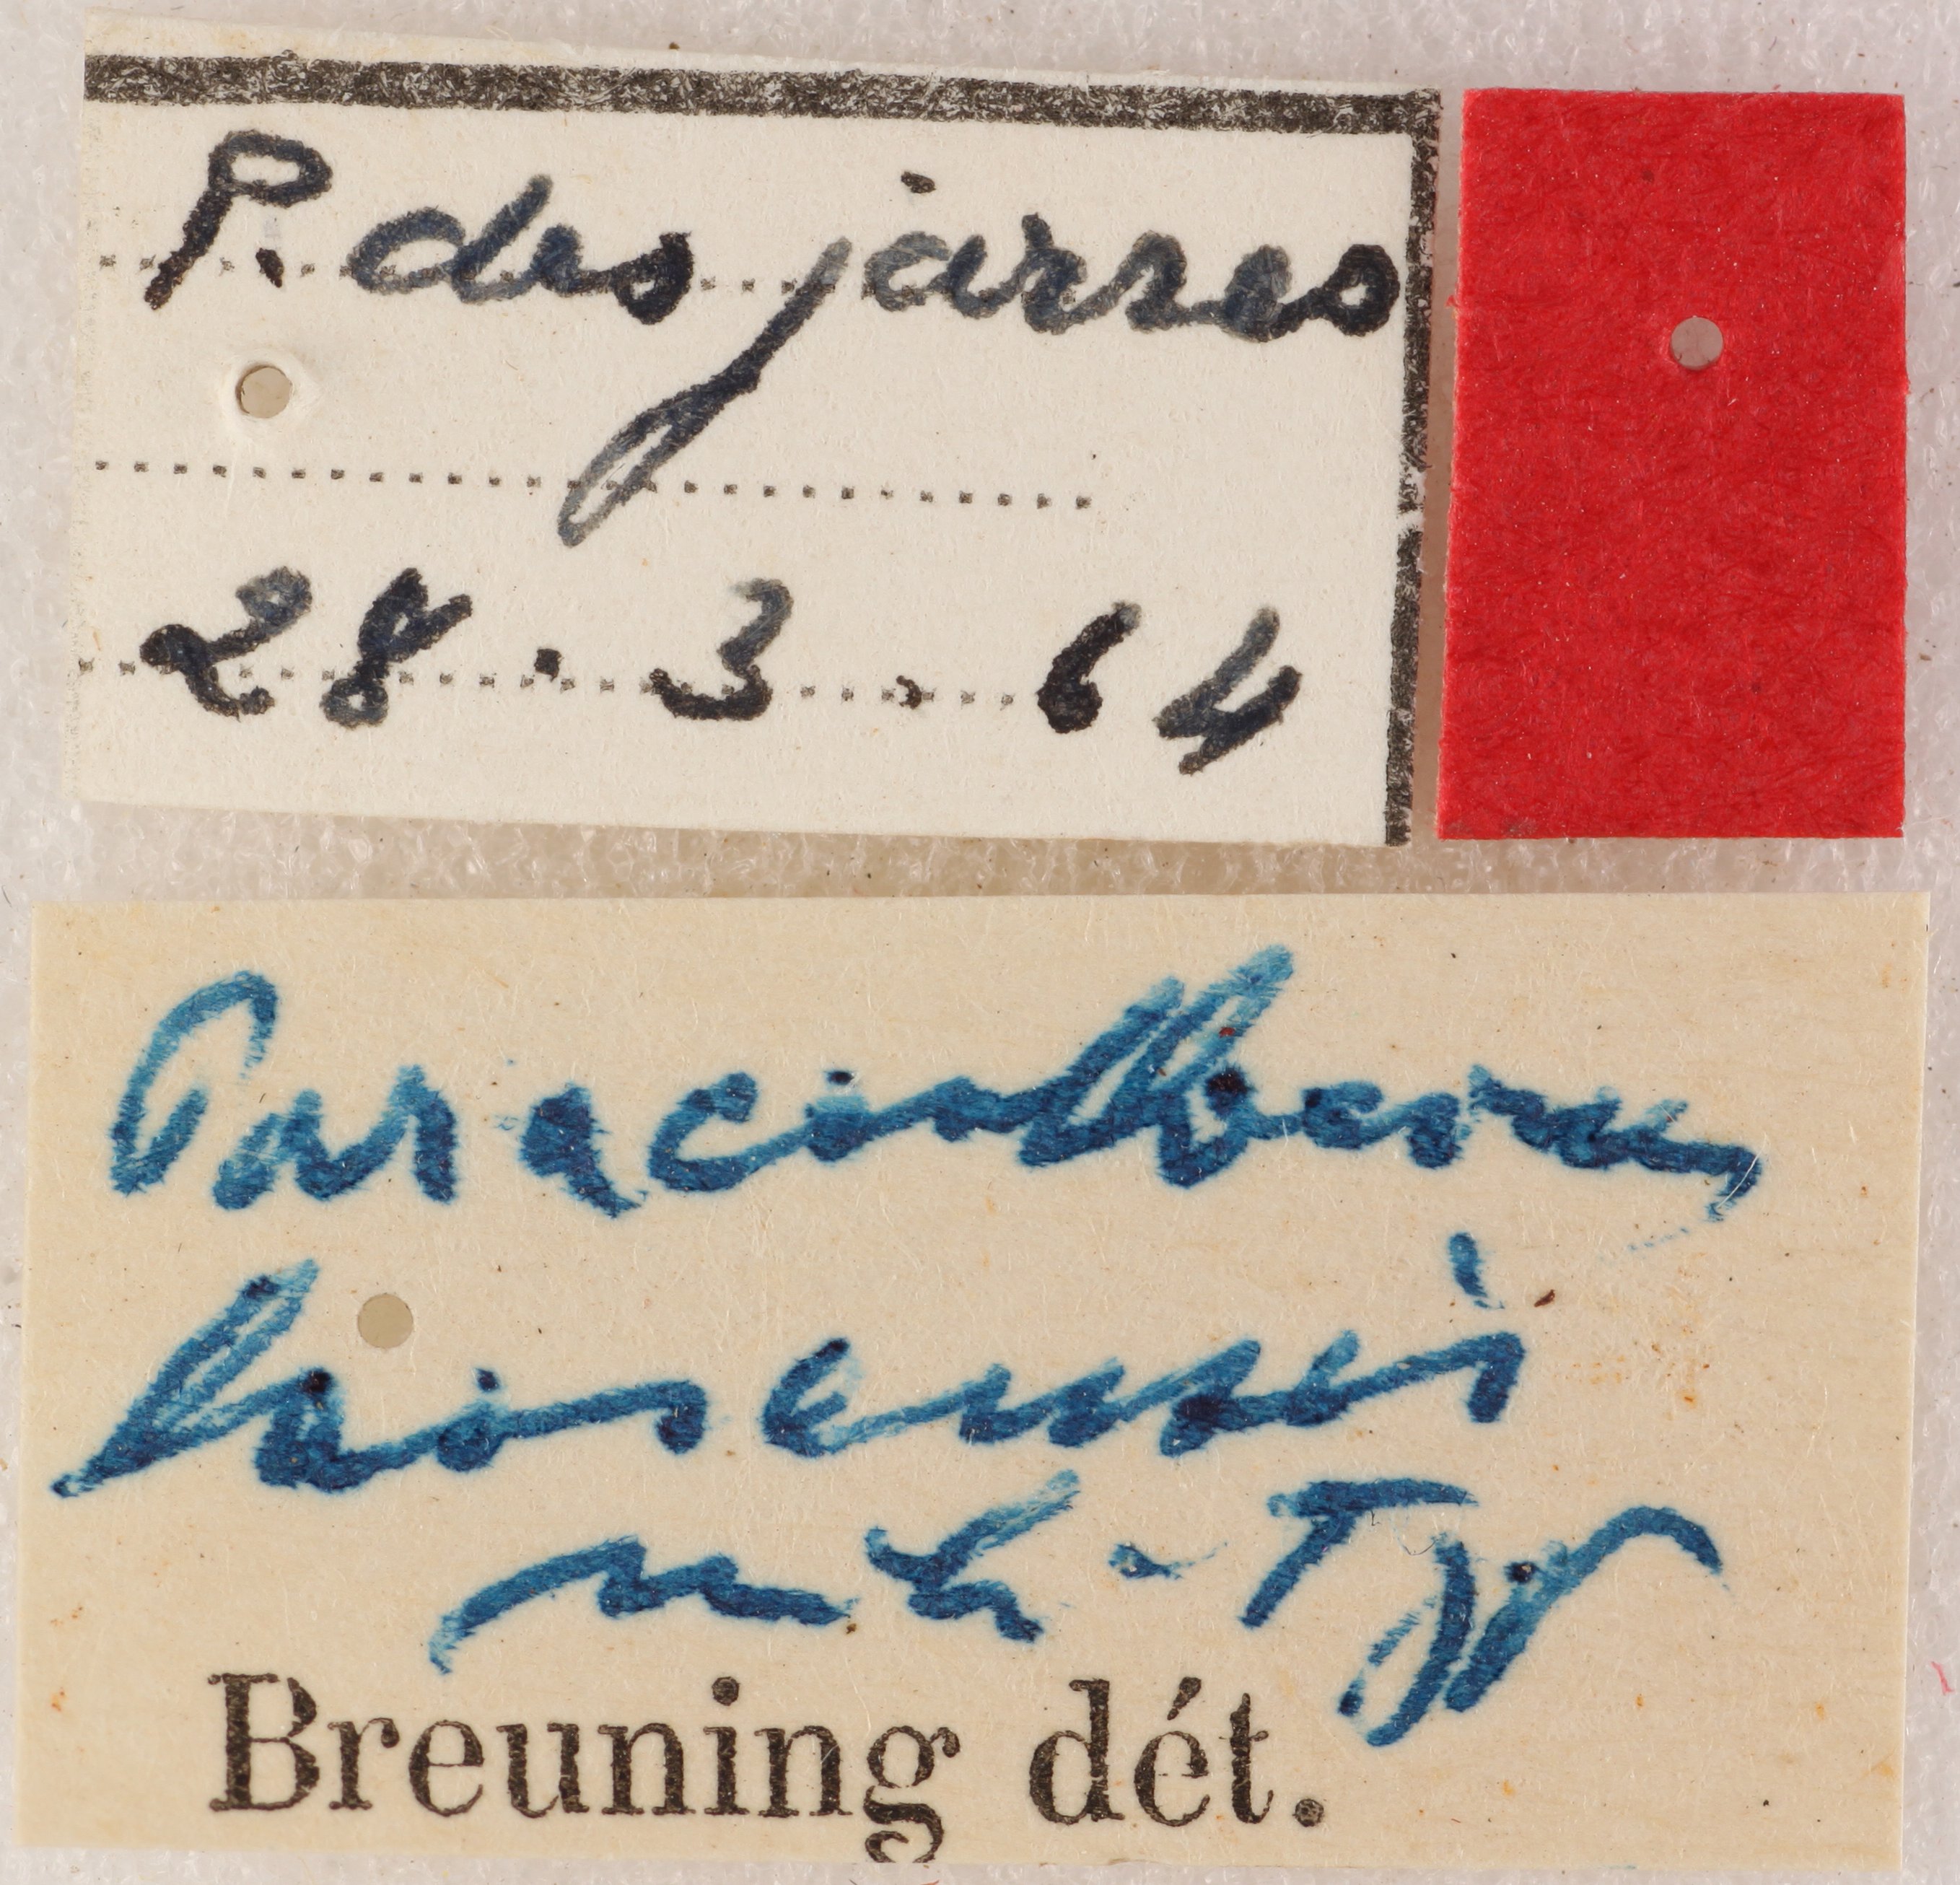 P. des jarres
28 . 3 . 64
Paracanthocinus
laosensis
mh - Typ
Breuning dét.